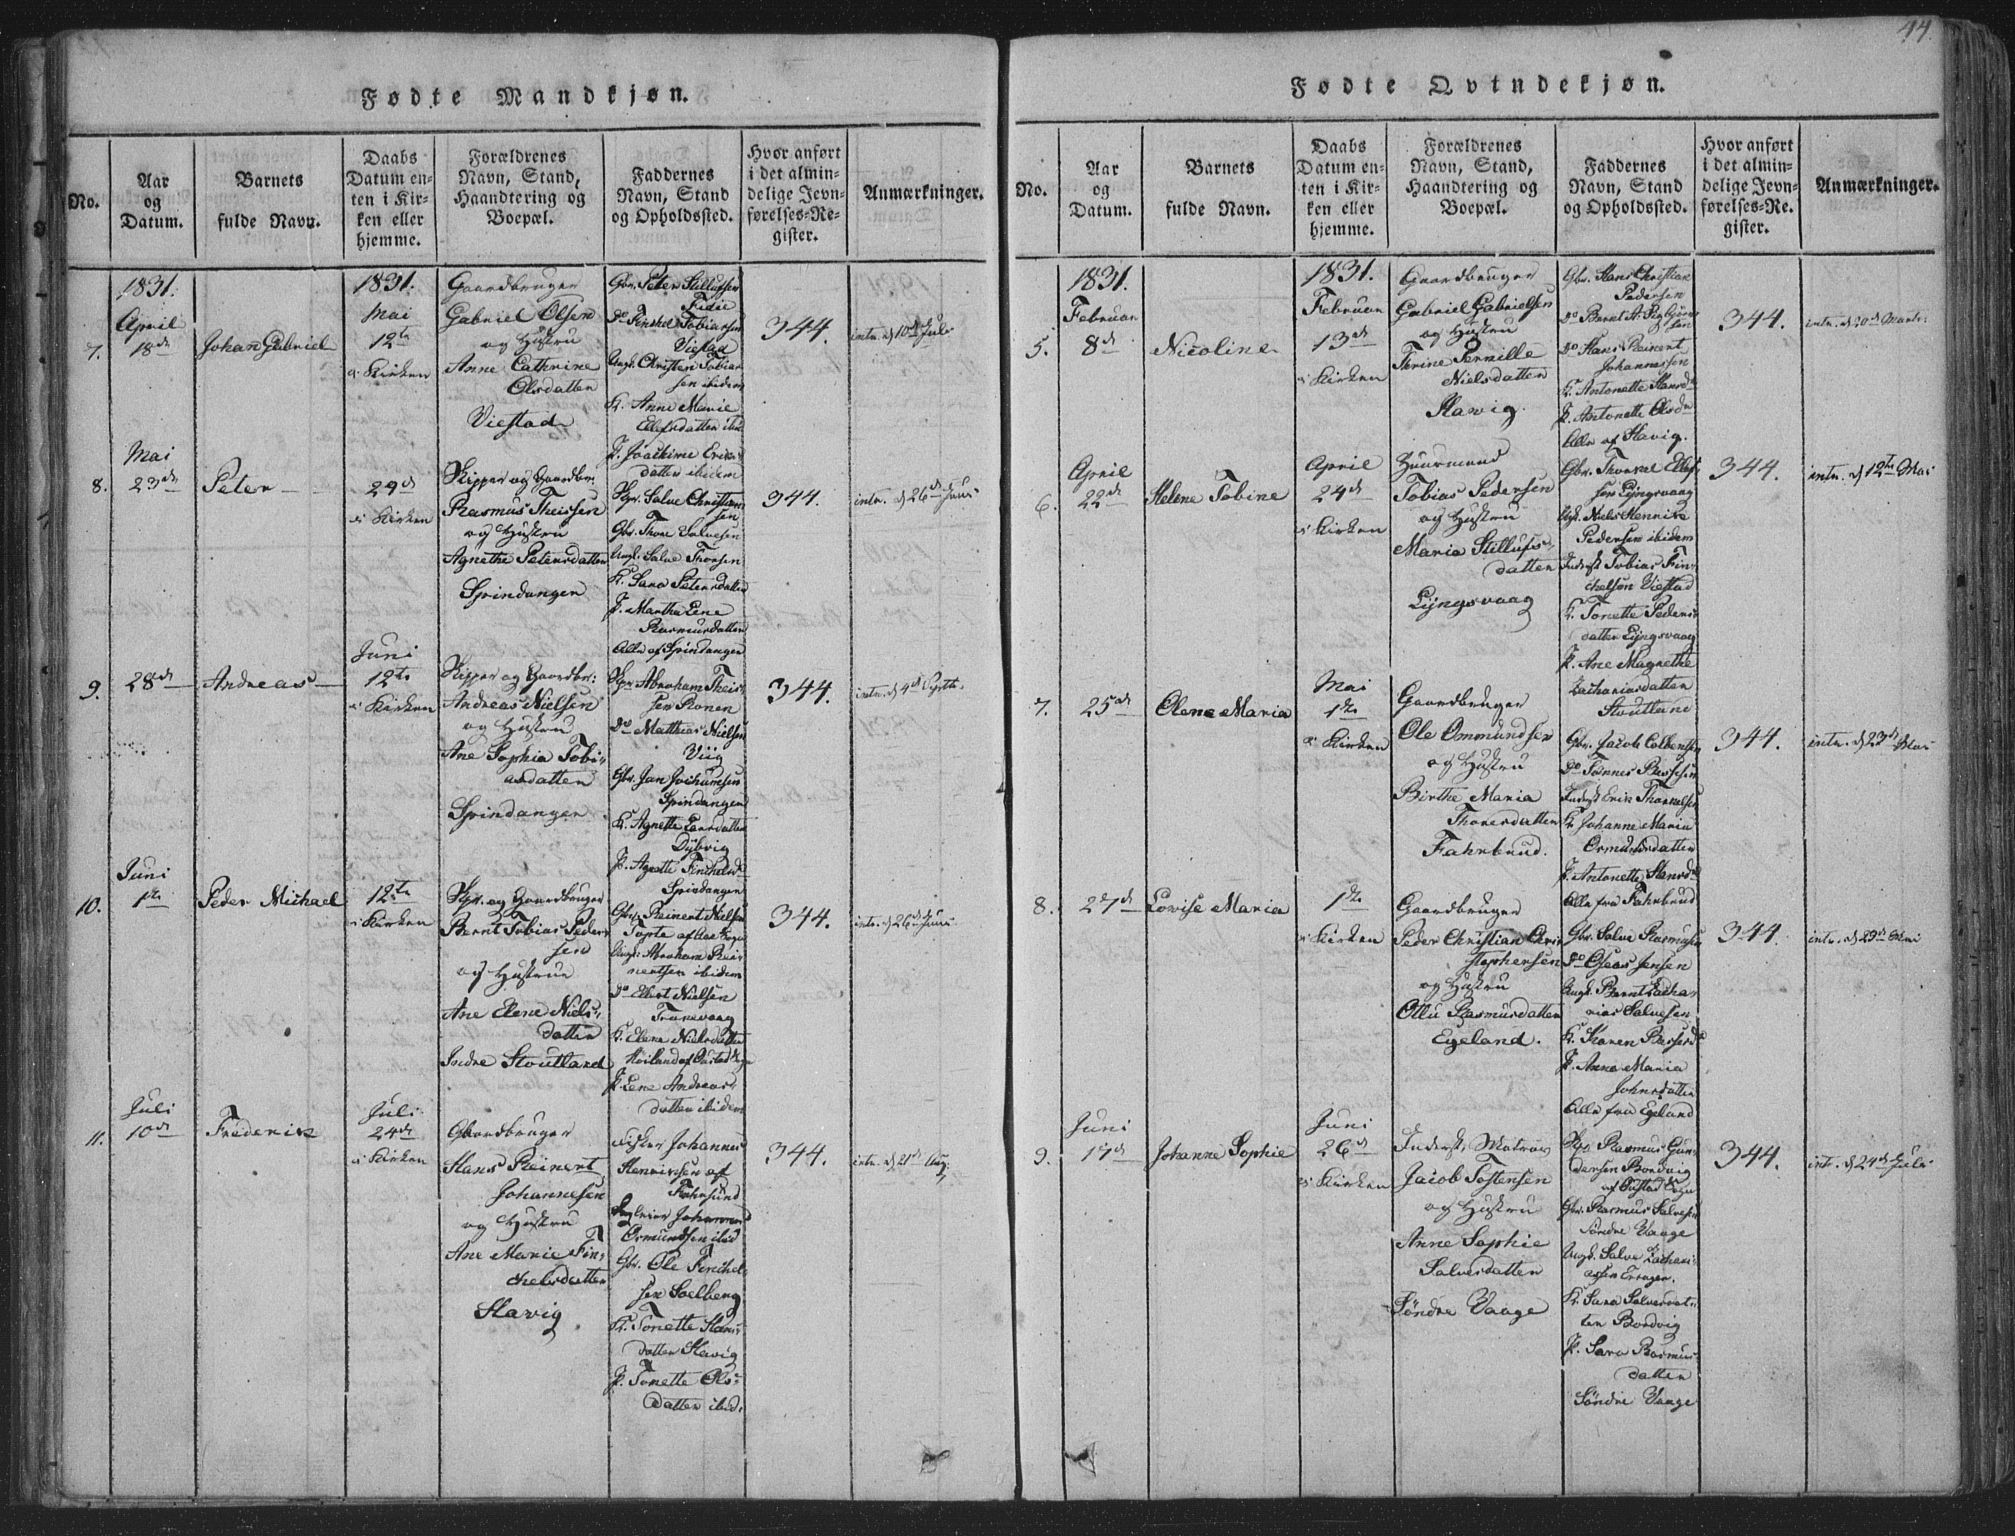 44.
Fødte Mandkjøn.
No.
Aar
og
Datum.
Barnets
fulde Navn.
Daabs
Datum en-
ten i Kir-
ken eller
hjemme.
Forældrenes
Navn, Stand,
Haandtering og
Boepæl.
Faddernes
Navn, Stand
og Opholdssted.
Hvor anført
i det almin-
delige Jevn-
førelses-Re-
gister.
Anmærkninger.
7.
1831.
April
18de
Johan Gabriel
1831.
Mai
12te
i Kirken
Gaardbruger
Gabriel Olsen
og Hustru
Anne Cathrine
Olsdatter
Viestad
Gbr. Peter Stillufsen
Fidie
Do Finchel Tobiassen
Viestad
Ungk. Christen Tobias-
sen ibidem
K. Anne Marie
Ellefsdatter ibid
P. Joachime Erics-
datter ibidem
344.
intr. d 10de Juli
8.
Mai
23de
Peter
29de
i Kirken
Skipper og Gaardbr.
Rasmus Theissen
og Hustru
Agnethe Petersdatter
Spindangen
Skpr. Salve Christian-
sen
Gbr. Thore Salvesen
Ungk. Salve Thorsen
K. Sara Petersdatter
P. Martha Lene
Rasmusdatter
Alle af Spindangen
344.
intr. d 26de Juni
9.
28de
Andreas
Juni
12te
i Kirken
Skipper og Gaardbr:
Andreas Nielsen
og Hustru
Ane Sophia Tobi-
asdatter
Spindangen
Skpr. Abraham Theis-
sen Ronen
Do Matthias Nielsen
Viig
Gbr. Jan Jochumsen
Spindangen
K. Agnette Larsdatter
Dybvig
P. Agnette Finchelsd
Spindangen
344.
intr. d 4de Septb.
10.
Juni
1te
Peder Michael
12te
i Kirken
Skpr. og Gaardbruger
Bernt Tobias Peder-
sen
og Hustrue
Ane Elene Niels-
datter
Indre Stoutland
Gbr. Reinert Nielsen
Ungk: Abraham Rei-
nertsen ibidem
Do Ellert Nielsen
Tranevaag
K. Elene Nielsdatter
P. Lene Andreas-
datter ibidem
344.
intr. d 26de Juni
11.
Juli
10de
Frederik
Juli
24de
i Kirken
Gaardbruger
Hans Reinert
Johannesen
og Hustru
Ane Marie Fin-
chelsdatter
Havig
Johannes
Henrichsen af
Fahrsund
Johannes
Ormundsen ibid
Gbr. Ole Finchel-
sen Soelberg
K. Tonette Hans-
datter Havig
P. Tonette Ols-
datter ibid.
344.
intr. d 21de Aug.
Fødte Qvindekjøn.
No.
Aar
og
Datum.
Barnets
fulde Navn.
Daabs
Datum en-
ten i Kir-
ken eller
hjemme.
Forældrenes
Navn, Stand,
Haandtering og
Boepæl.
Faddernes
Navn, Stand
og Opholdssted.
Hvor anført
i det almin-
delige Jevn-
førelses-Re-
gister.
Anmærkninger.
5.
1831.
Februar
8de
Nicoline
1831.
Februar
13de
i Kirken
Gaardbruger
Gabriel Gabrielsen
og Hustru
Thrine Pernille
Nielsdatter
Havig.
Gbr. Hans Christian
Pedersen
Do Hans Reinert
Johannessen
K. Antonette Hansd
P. Antonette Olsd
Alle af Havig.
344.
intr. d 20de Marts
6.
April
22de
Helene Tobine
April
24de
i Kirken
Huusmand
Tobias Pedersen
og Hustru
Maria Stillufs-
datter
Lyngsvaag
Gbr. Thorkel Ellef-
sen Lyngsvaag
Ungk. Niels Henrik
Pedersen ibidem
Inderst Tobias Fin-
chelsen Viestad
K. Tonette Peders-
datter Lyngsvaag
P. Ane Magrethe
Zachariasdatter
Stoutland
344.
intr. d 12te Mai
7.
25de
Olene Maria
Mai
1te
i Kirken
Gaardbruger
Ole Ommundsen
og Hustru
Birthe Maria
Thoresdatter
Fahrbrud.
Gbr. Jacob Colbensen
Do Tønnes Bessesen
Inderst Erik Thorkelsen
K. Johanne Maria
Ormundsdatter
P. Antonette Hansd
Alle fra Fahrbrud
344.
intr. d 23de Mai
8.
27de
Lovise Maria
1te
i Kirken
Gaardbruger
Peder Christian Chri-
stophersen
og Hustru
Ollu Rasmusdatter
Egeland.
Gbr. Salve Rasmusen
Do Oseas Jensen
Ungk. Bernt Zacha-
rias Salvesen
K. Karen Bessesd
P. Anne Maria
Johnsdatter
Alle fra Egeland
344
intr. d 29de Mai
9.
Juni
17de
Johanne Sophie
Juni
26de
i Kirken
Inderst, Matros
Jacob Tostensen
og Hustru
Anne Sophie
Salvesdatter
Søndre Vaage
Skpr Rasmus Gun-
dersen Bordvig
af Oustad Sogn
Gbr. Rasmus Salvesen
Søndre Vaage
Ungk. Salve Zachari-
assen
K. Sara Salvesdat-
ter Bordvig
P. Sara Rasmus-
datter
Søndre Vaage
344.
intr. d 24de Juli